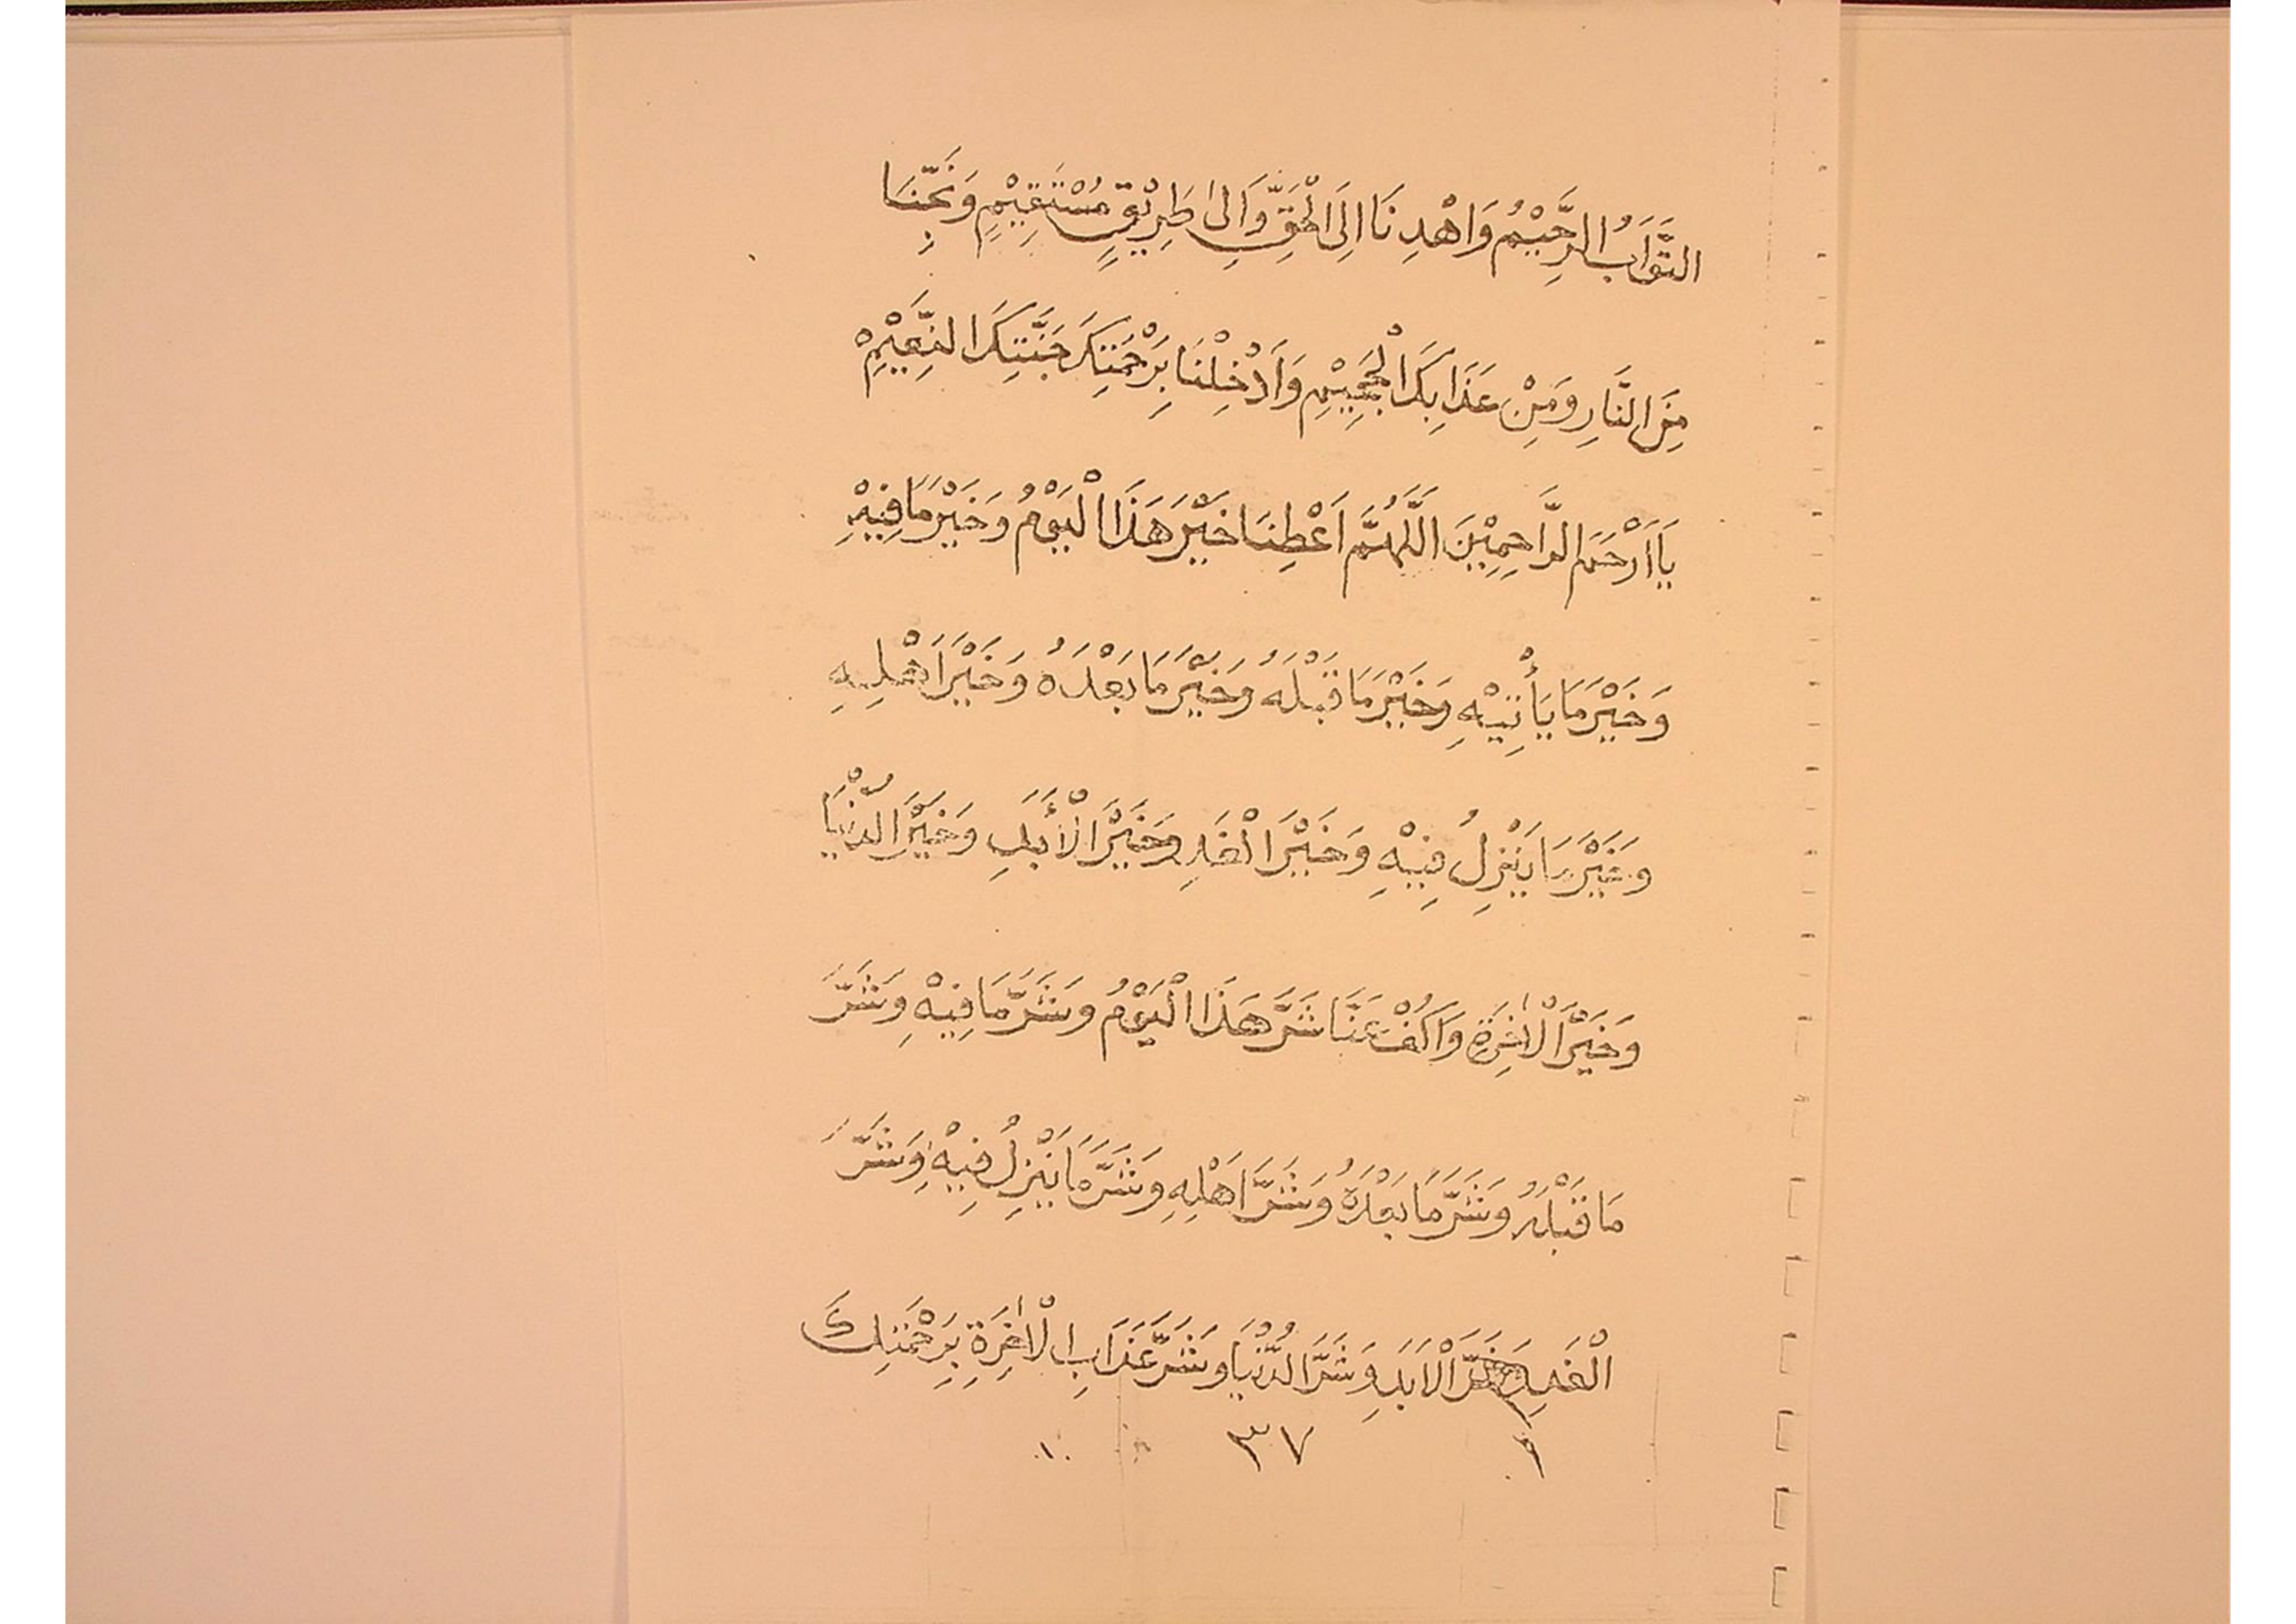 التَّوَابُ الرَّحِيْمُ وَاهْدِنَا اِلَى الْحَقِّ وَاَلىٰ طَرِيْقٍ مُسْتَقِيْمٍ وَنَجِّنَا
مِنَ النَّارِ وَمِنْ عَذَابِكَ الْجَحِيْمِ وَاَدْخِلْنَا بِرَحْمَتِكَ جَنَّتِكَ النَّعِيْمِ
يَا اَرْحَمَ الرَّاحِمِيْنَ اَللَّهُمَّ اَعْطِنَا خَيْرَ هَذَا الْيَوْمُ وَخَيْرَ مَا فِيْهِ
وَخَيْرَ مَا يَأْتِيْهِ وَخَيْرَ مَا قَبْلَهُ وَخَيْرَ مَا بَعْدَهُ وَخَيْرَ اَهْلِهِ
وَخَيْرَ مَا يَنْزِلُ فِيْهِ وَخَيْرَ الْغَدِ وَخَيْرَ الْأَبَدِ وَخَيْرَ الدُّنْيَا
وَخَيْرَ الْاٰخِرَةِ وَاكُفْ عَنَّا شَرَّ هَذَا الْيَوْمُ وَشَرَّ مَا فِيْهِ وَشَرَّ
مَا قَبْلَهُ وَشَرَّ مَا بَعْدَهُ وَشَرَّ اَهْلِهِ وَشَرَّ مَا يَنْزِلُ فِيْهِ وَشَرَّ
الْغَدِ الْاَبَدِ وَشَرَّ الدُّنْيَا وَشَرَّ عَذَابِ الْاٰخِرَةِ بِرَحْمَتِكَ
٣٧